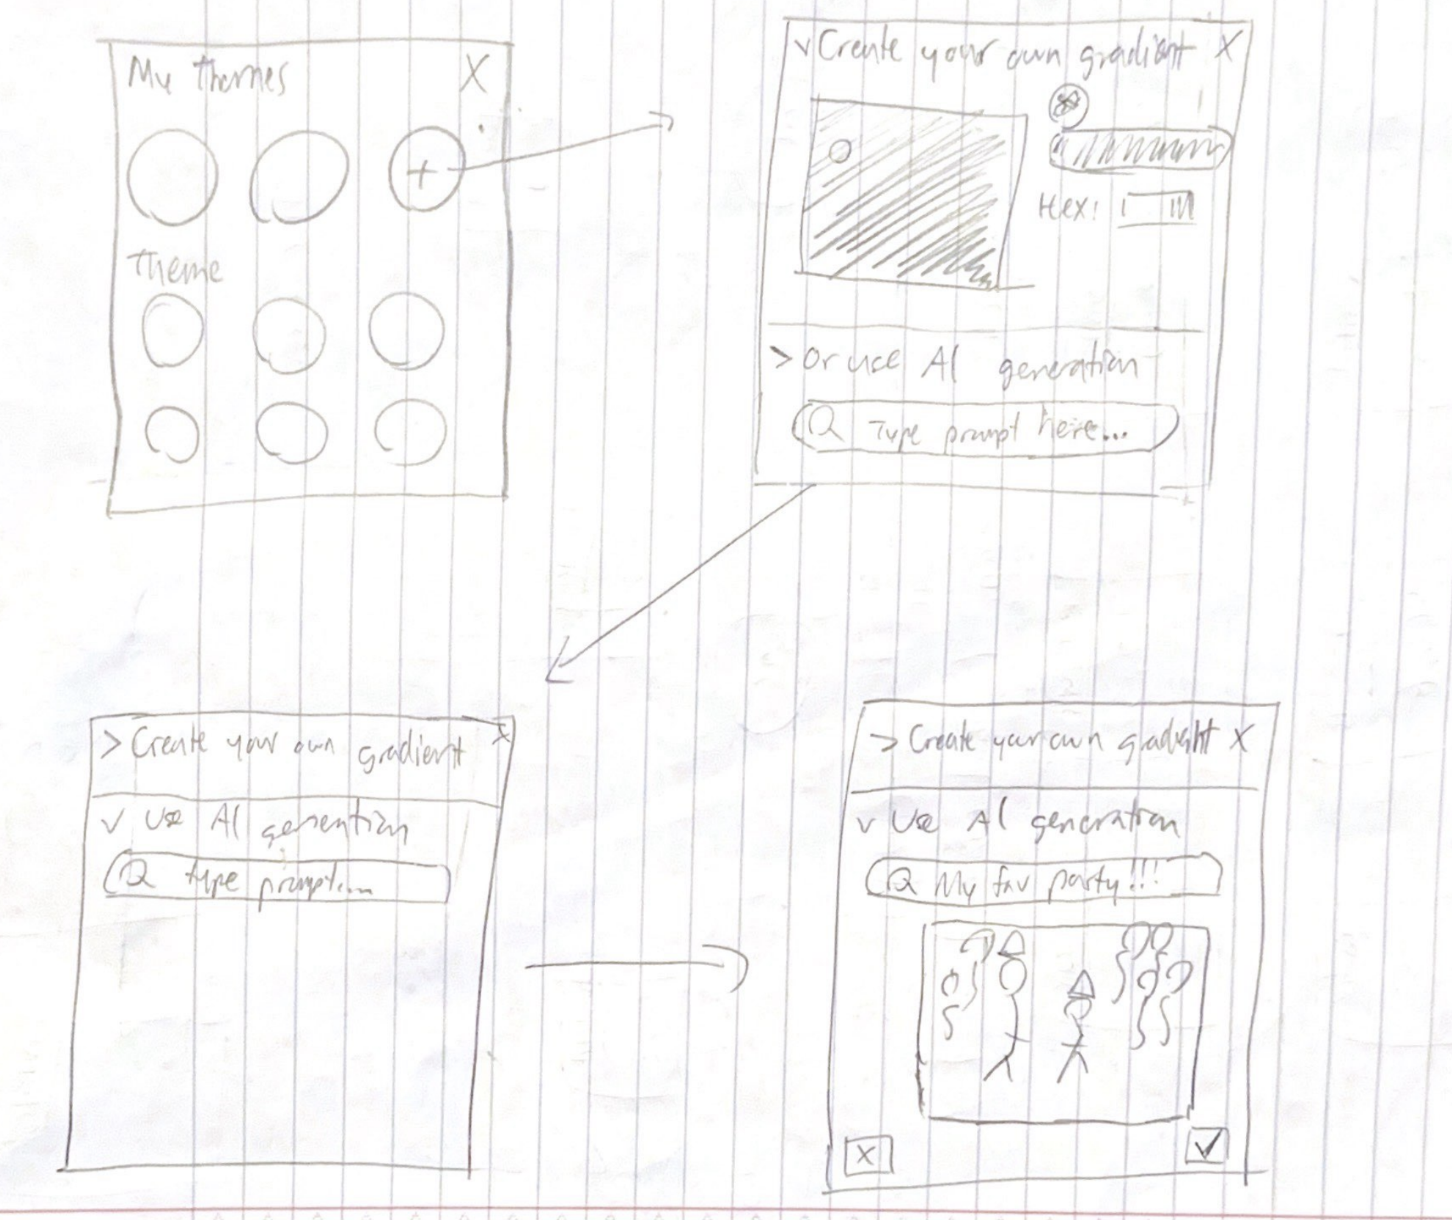 My Themes X
+
Theme
v Create your own gradient X
Hex:
> Or use AI generation
Type prompt here...
> Create your own gradient X
v Use AI generation
type prompt....
> Create your own gradient X
v Use AI generation
My fav party!!!
X